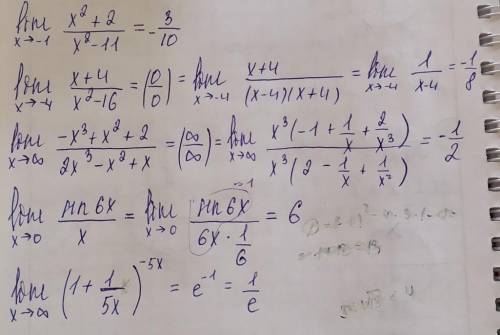 lim x→-1 (x² + 2)/(x² - 11) = -3/10
lim x→-4 (x+4)/(x²-16) = (0/0) = lim x→-4 (x+4)/((x-4)(x+4)) = lim x→-4 1/(x-4) = -1/8
lim x→∞ (-x³+x²+2)/(2x³-x²+x) = (∞/∞) = lim x→∞ (x³(-1 + 1/x + 2/x³))/(x³(2 - 1/x + 1/x²)) = -1/2
lim x→0 (sin 6x)/x = lim x→0 (sin 6x)/(6x · 1/6) = 6
lim x→∞ (1 + 1/5x)^(-5x) = e⁻¹ = 1/e